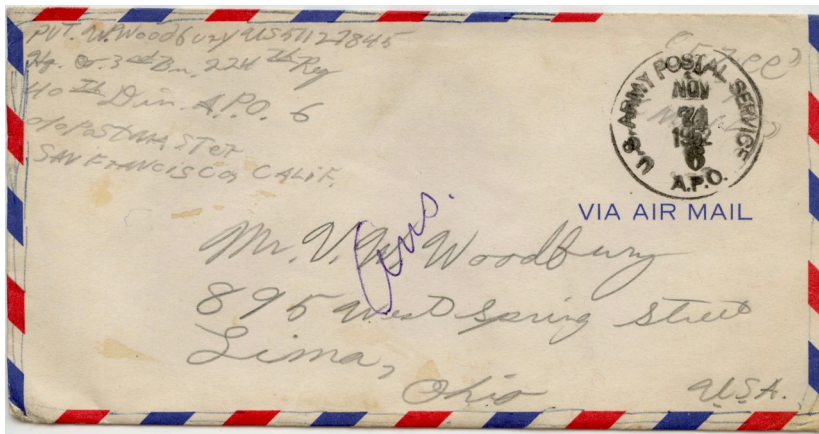 PVT. W. Woodbury US51127845
Hq. Co. 3rd Bn, 224th Reg
40th Div. A.P.O. 6
c/o PostMASTer
SAN FrANCISCO, CALIF.
"Free"
U.S. ARMY POSTAL SERVICE
NOV
24
1952
A.P.O.
VIA AIR MAIL
Ans.
Mr. V. W. Woodbury
895 West Spring Street
Lima,
Ohio
U.S.A.